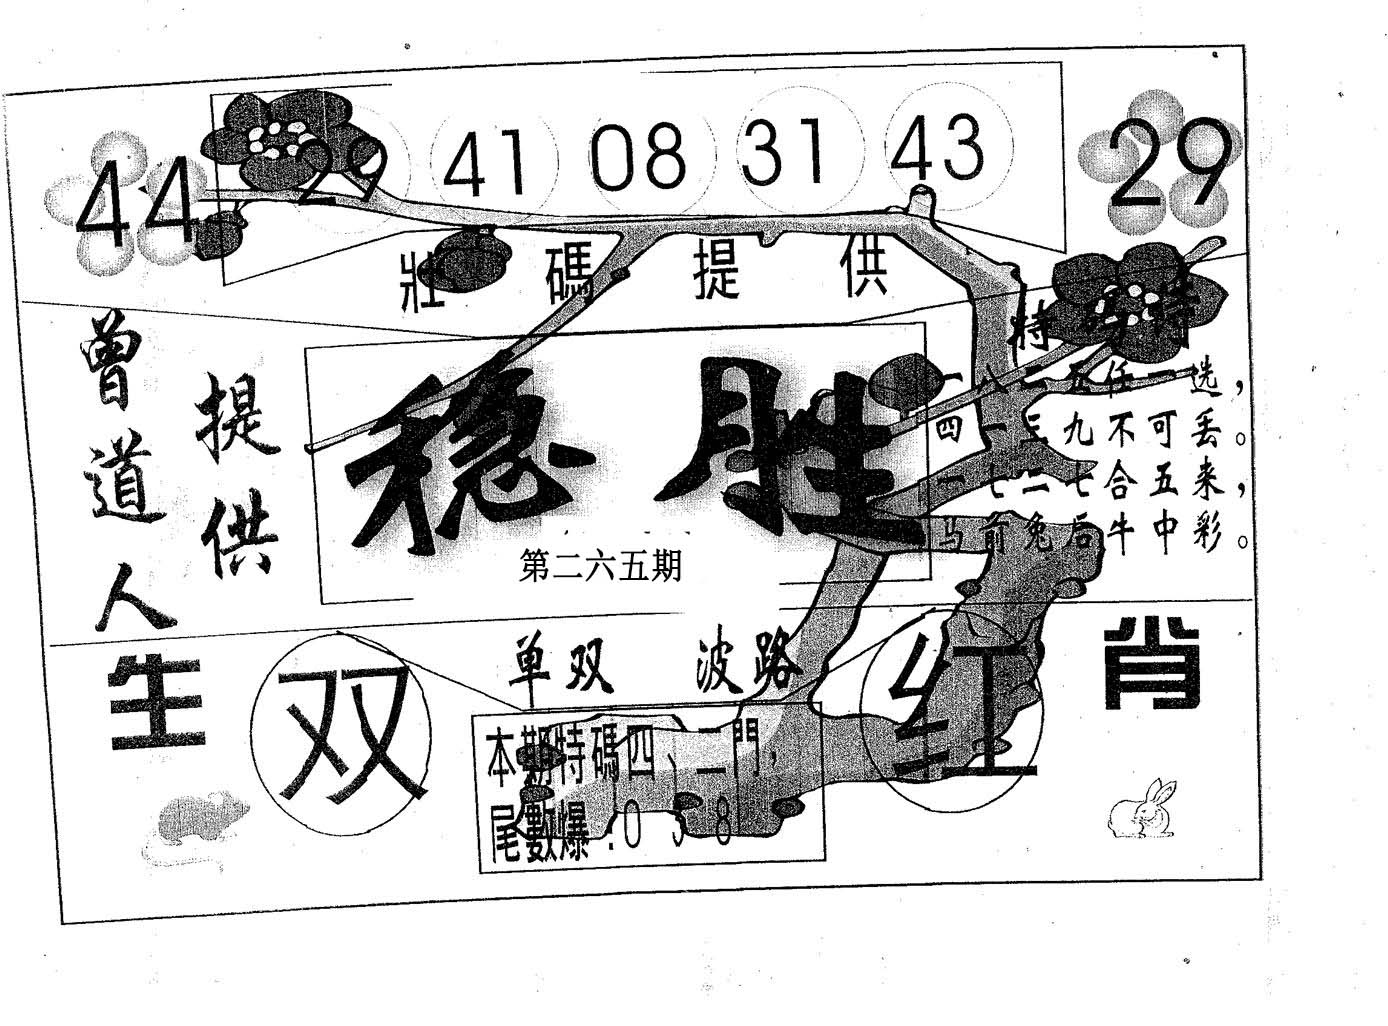 44 29 41 08 31 43 29
壯碼提供
曾道人
提供
稳胜
第二六五期
特
一八二五任一选，
四一三九不可丢。
一七二七合五来，
马前兔后牛中彩。
生
双
单双 波路
红
肖
本期特碼四、二門，
尾數爆:0 5 8